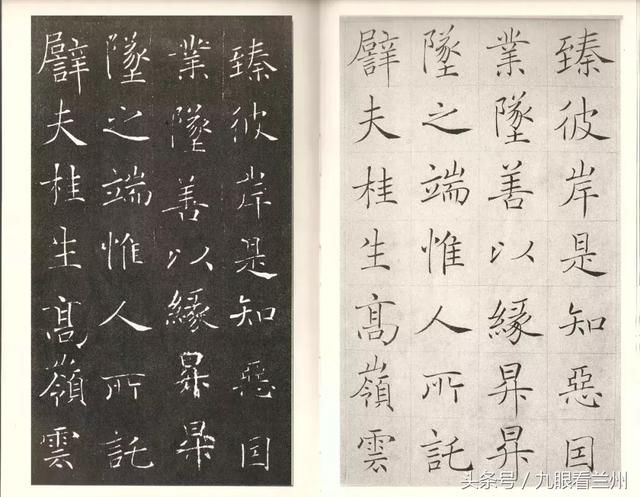 臻彼岸是知惡囙
業墜善以緣昇昇
墜之端惟人所託
譬夫桂生髙嶺雲
臻彼岸是知惡囙
業墜善以緣昇昇
墜之端惟人所託
譬夫桂生髙嶺雲
头条号 / 九眼看兰州